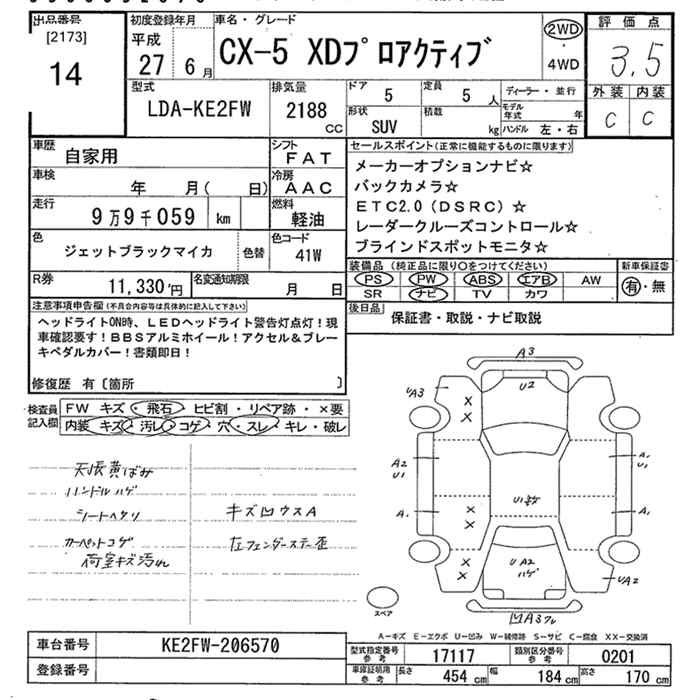 出品番号 初度登録年月 車名・グレード 評価点
[2173] 平成 CX-5 XDプロアクティブ 2WD
14 27 6月 4WD 3.5
型式 排気量 ドア 定員 ディーラー・並行 外装 内装
LDA-KE2FW 2188 5 5人 モデル年式 年 C C
cc 形状 積載
SUV kg ハンドル 左・右
車歴 自家用 シフト FAT セールスポイント(正常に機能するものに限ります)
車検 年 月( 日) 冷房 AAC メーカーオプションナビ☆
バックカメラ☆
走行 9万9千059 km 燃料 軽油 ETC2.0(DSRC)☆
レーダークルーズコントロール☆
色 ジェットブラックマイカ 色替 色コード 41W ブラインドスポットモニタ☆
装備品(純正品に限り○をつけてください) 新車保証書
R券 11,330円 名変通知期限 月 日 PS PW ABS エアB AW 有・無
SR ナビ TV カワ
注意事項申告欄(不具合内容等は具体的に記入して下さい) 後日品 保証書・取説・ナビ取説
ヘッドライトON時、LEDヘッドライト警告灯点灯!現
車確認要す!BBSアルミホイール!アクセル&ブレー
キペダルカバー!書類即日!
修復歴 有〔箇所 〕
検査員記入欄 FW キズ・飛石・ヒビ割・リペア跡・×要
内装 キズ・汚レ・コゲ・穴・スレ・キレ・破レ
A3
UA3 U2
× ×
A2 U1 A1 U1
天張黄ばみ
ハンドルハゲ
シートヘタリ キズ凹ウスA A1 × × A1
カーペットコゲ 左フェンダーステー歪
荷室キズ汚れ × × UA2 ハゲ UA2
スペア
A-キズ E-エクボ U-凹み W-補修跡 S-サビ C-腐食 XX-交換済
車台番号 KE2FW-206570 型式指定番号 参考 17117 類別区分番号 参考 0201
登録番号 車庫証明用 参考 長さ 454 cm 幅 184 cm 高さ 170 cm